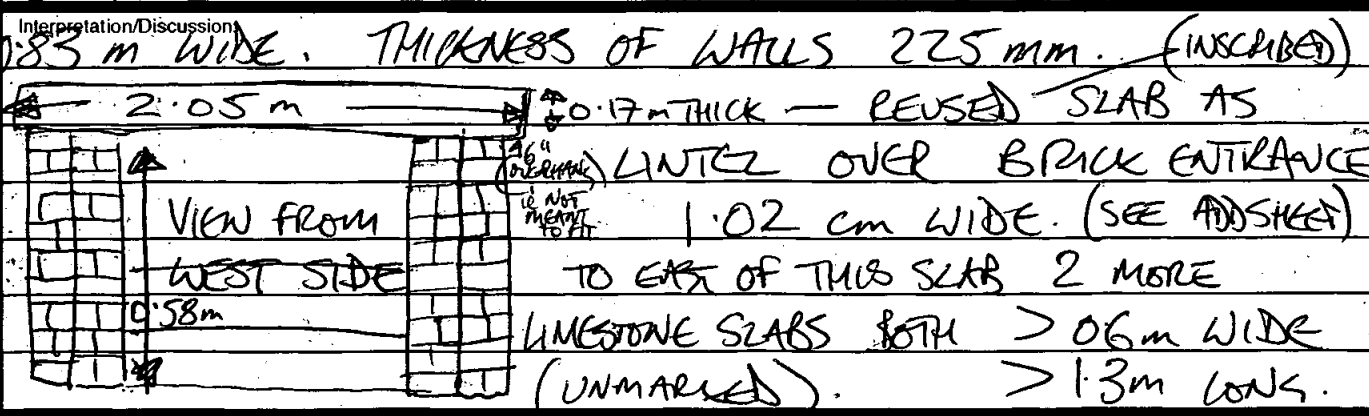 Interpretation/Discussion:
0.83 m WIDE. THICKNESS OF WALLS 225 mm. (INSCRIBED)
2.05 m 0.17m THICK — REUSED SLAB AS
(6" OVERHANG) LINTEL OVER BRICK ENTRANCE
ie NOT MEANT TO FIT
VIEW FROM 1.02 cm WIDE. (SEE ADDSHEET)
WEST SIDE TO EAST OF THIS SLAB 2 MORE
0.58m LIMESTONE SLABS BOTH > 06m WIDE
(UNMARKED). > 1.3m LONG.